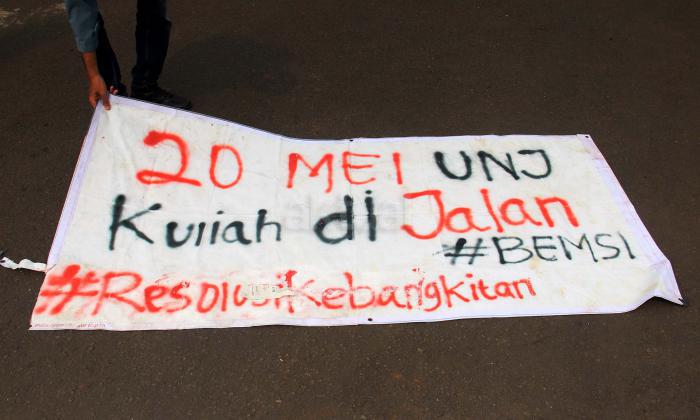 20 MEI UNJ
Kuliah di Jalan
#BEMSI
#ResolusiKebangkitan